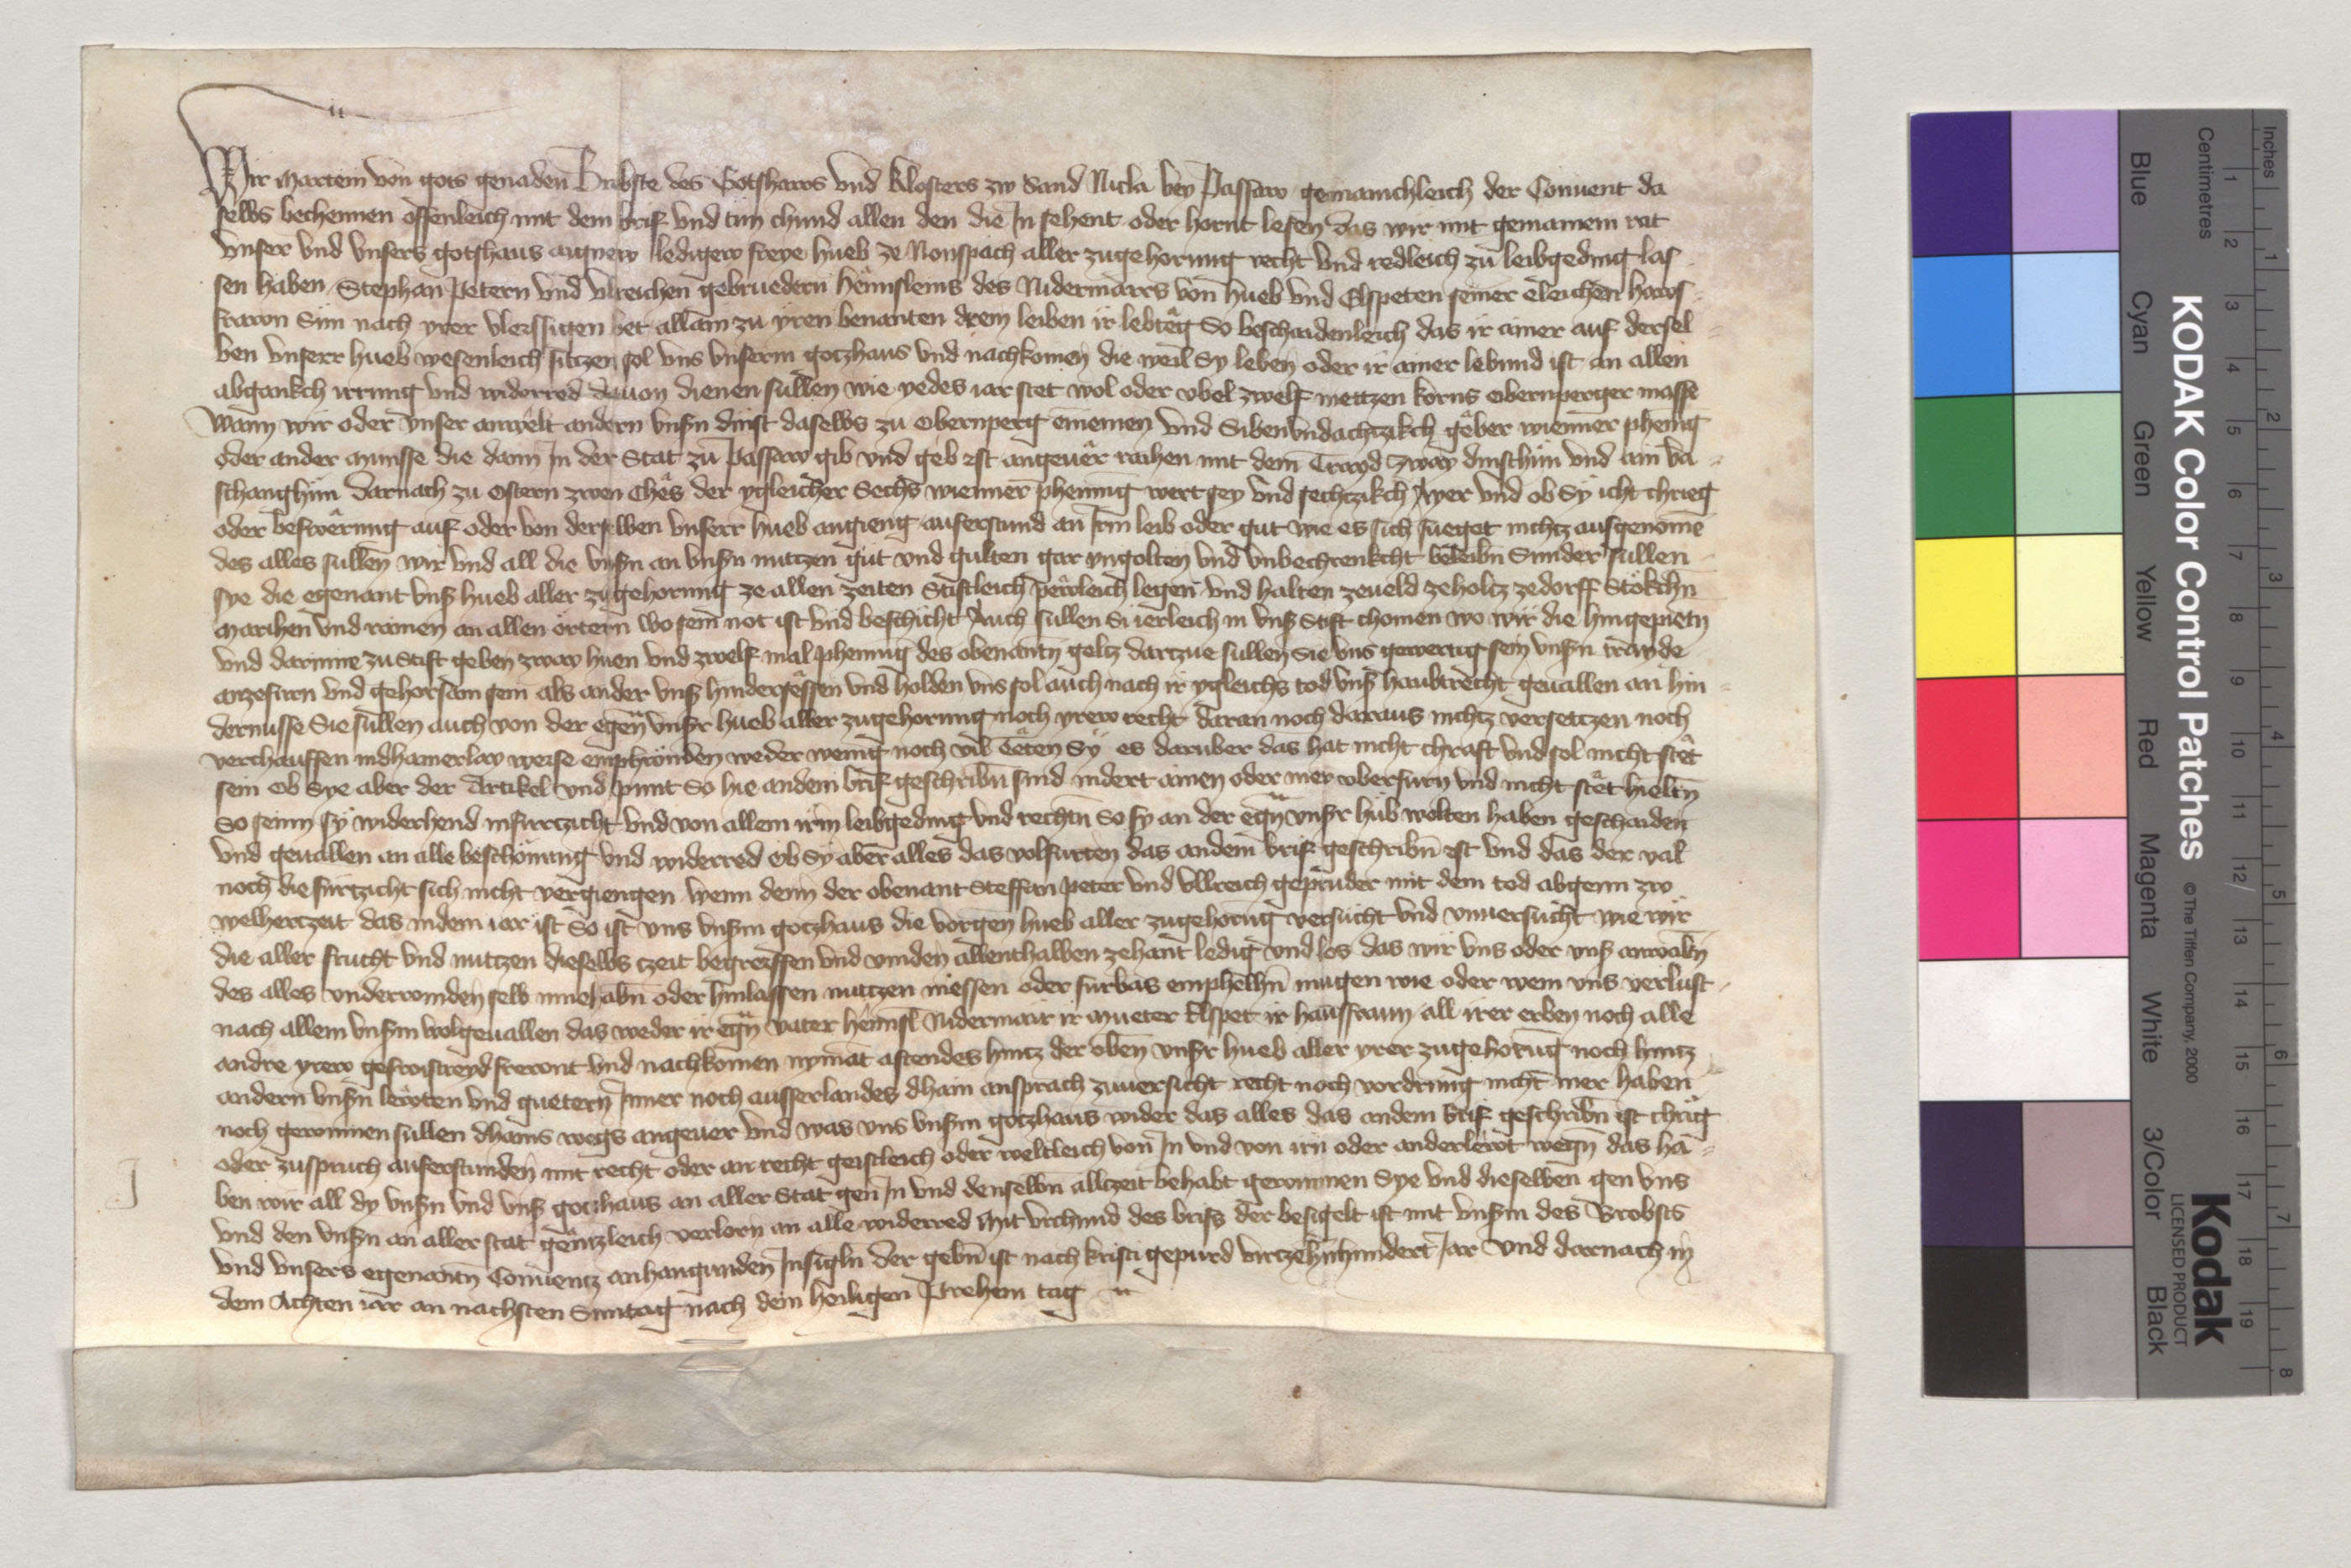 Wir Martein von gots genaden Brobste des Gotshaws vnd Klosters zw Sand Nicla bey Passaw gemainchleich der Conuent da
selbs bechennen offenleich mit dem brif vnd tun chund allen den die In sehent oder hornt lesen das wir mit gemainem rat
vnser vnd vnsers gotshaus aignew ledigew freye hueb ze Nonspach aller zugehorung recht vnd redleich zu leibgeding las
sen haben Stephan Petern vnd Vlreichen gebruedern Hennsleins des Nidermairs von Hueb vnd Elspeten seiner eleichen haws
frawn Sun nach yrer vleissigen bet allain zu yren benanten drein leiben ir lebteg So beschaidenleich das ir ainer auf dersel
ben vnserr hueb wesenleich sitzen sol vns vnserm gotzhaus vnd nachkomen die weil Sy leben oder ir ainer lebund ist an allen
abgankch irrung vnd widerred dauon dienen sullen wie yedes iar stet wol oder vbel zwelf mettzen korns Obernperger masse
Wann wir oder vnser anwelt andern vnsn dinst daselbs zu Obernperg einemen vnd Sibenvndachtzikch geber wienner phenig
oder ander munsse die dann In der Stat zu Passaw gib vnd geb ist angeuer raihen mit dem Trayd zway dinsthun vnd ain va
schanghun darnach zu Ostern zwen Ches der ygleicher Sechs wienner phennig wert sey vnd sechtzikch Ayer vnd ob Sy icht chrieg
oder beswerung auf oder von derselben vnserr hueb angieng auferstund an Irm leib oder gut wie es sich fueget nichtz ausgenome
des alles sullen wir vnd all die vnsn an vnsn nutzen gut vnd gulten gar yngolten vnd vnbechrenkcht beleibn Sunder sullen
sye die egenant vnsr hueb aller zugehorung ze allen zeiten Stiftleich pewleich legen vnd halten zeueld zeholtz zedorff Stokchn
marchen vnd ramen an allen ortern wo sein not ist vnd beschicht Auch sullen Si ierleich in vnsr Stift chomen wo wir die hingepietn
vnd darinne zu Stift geben zway huen vnd zwelf mal phennig des obenantn geltz dartzue sullen Sie vns gewertig sein vnsn trayde
anzefurn vnd gehorsam sein als ander vnsr hindersessen vnd holden vns sol auch nach ir ygleichs tod vnsr haubtrecht geuallen an hin
dernusse Sie sullen auch von der egen vnsr hueb aller zugehorung noch yrew recht daran noch daraus nichtz versettzen noch
verchauffen indhainerlay weise emphronden weder wenig noch vil Teten Sy es daruber das hat nicht chraft vnd sol nicht stet
sein Ob Sye aber der Artikel vnd punt So hie andem brif geschribn sind indert ainen oder mer vberfurn vnd nicht stet hieltn
So seinn sy widerhend infurtzicht vnd von allem irm leibgeding vnd rechtn So sy an der egn vnsr hub wolten haben geschaiden
vnd geuallen an alle beschonung vnd widerred ob Sy aber alles das volfurten das andem brif geschribn ist vnd das der val
noch die furtzicht sich nicht vergiengen wenn denn der obenant Steffan Peter vnd Vllreich gepruder mit dem tod abgenn zw
welhertzeit das indem iar ist So ist vns vnsm gotzhaus die vorgen hueb aller zugehorug versucht vnd vnuersucht wie wir
die aller frucht vnd nutzen dieselbs tzeit begreiffen vnd vinden allenthalben zehant ledig vnd los das wir vns oder vnsr anwaltn
des alles vnderwinden selb innehabn oder hinlassen nuttzen niessen oder furbas emphelhn mugen wie oder wem vns verlust
nach allem vnsm wolgeuallen das weder ir egn vater Hennsl Nidermair ir mueter Elspet ir hausfraun all irer erben noch alle
andre yrew geswistreyd frewnt vnd nachkomen nymat astendes hintz der oben vnsr hueb aller yrer zugehorug noch hintz
andern vnsn lewten vnd guetern Inner noch ausserlandes dhain ansprach zuuersicht recht noch vordrung nicht mer haben
noch gewinnen sullen dhains wegs angeuer vnd was vns vnsm gotzhaus wider das alles das andem brif geschribn ist chrieg
oder zuspruch auferstunden mit recht oder an recht geistleich oder weltleich von In vnd von irn oder anderlewt wegn das ha
ben wir all dy vnsn vnd vnsr gotzhaus an aller Stat gen In vnd denselbn alltzeit behabt gewunnen Sye vnd dieselben gen vns
vnd den vnsn an aller stat gentzleich verlorn an alle widerred Mit vrchund des brifs der besigelt ist mit vnsm des Brobsts
vnd vnsers egenantn Conuentz anhangunden Insigln Der gebn ist nach kristi gepurd virtzehnhundert Jar Vnd darnach in
dem Achten iar an nachsten Suntag nach dem heiligen Prehem tag
KODAK Color Control Patches
© The Tiffen Company, 2000
Kodak
LICENSED PRODUCT
Blue
Cyan
Green
Yellow
Red
Magenta
White
3/Color
Black
Centimetres
Inches
1 2 3 4 5 6 7 8 9 10 11 12 13 14 15 16 17 18 19
1 2 3 4 5 6 7 8